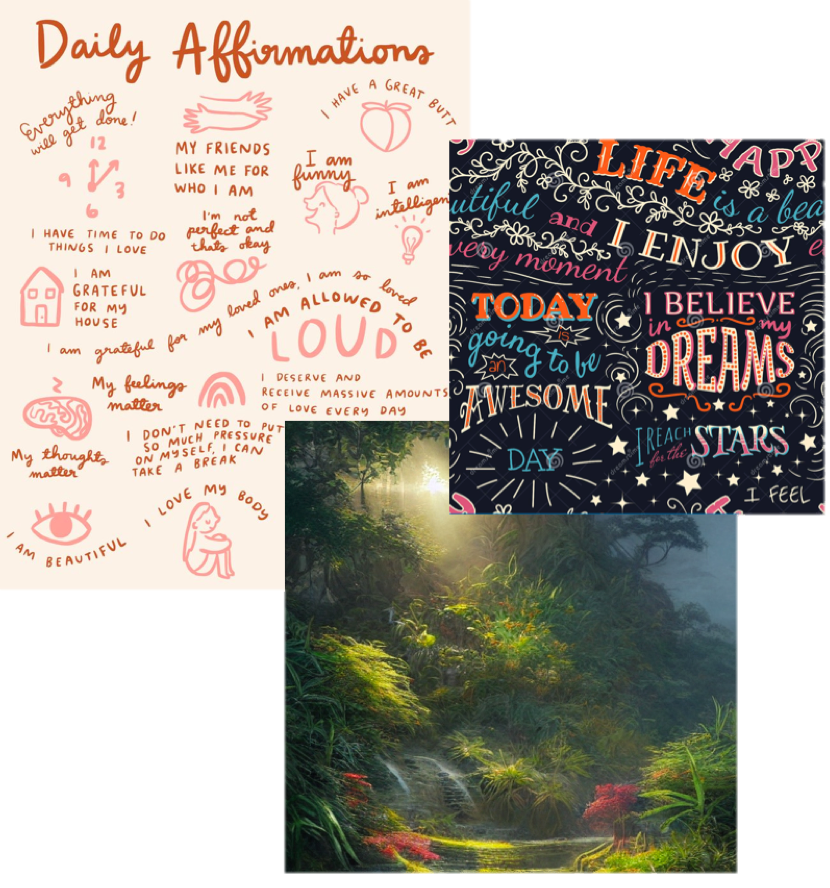 Daily Affirmations
Everything
will get done!
12
9
3
6
I HAVE TIME TO DO
THINGS I LOVE
MY FRIENDS
LIKE ME FOR
WHO I AM
I HAVE A GREAT BUTT
I am
funny
I am
intelligen
I'm not
perfect and
thats okay
I AM
GRATEFUL
FOR MY
HOUSE
I am grateful for my loved ones, I am so loved
I AM ALLOWED TO BE
LOUD
My feelings
matter
I DESERVE AND
RECEIVE MASSIVE AMOUNTS
OF LOVE EVERY DAY
My thoughts
matter
I DON'T NEED TO PUT
SO MUCH PRESSURE
ON MYSELF, I CAN
TAKE A BREAK
I AM BEAUTIFUL
I LOVE MY BODY
LIFE
HAPP
utiful and
is a bea
I ENJOY
very moment
TODAY
is
going to be
an
AWESOME
DAY
I BELIEVE
in my
DREAMS
I REACH
for the
STARS
I FEEL